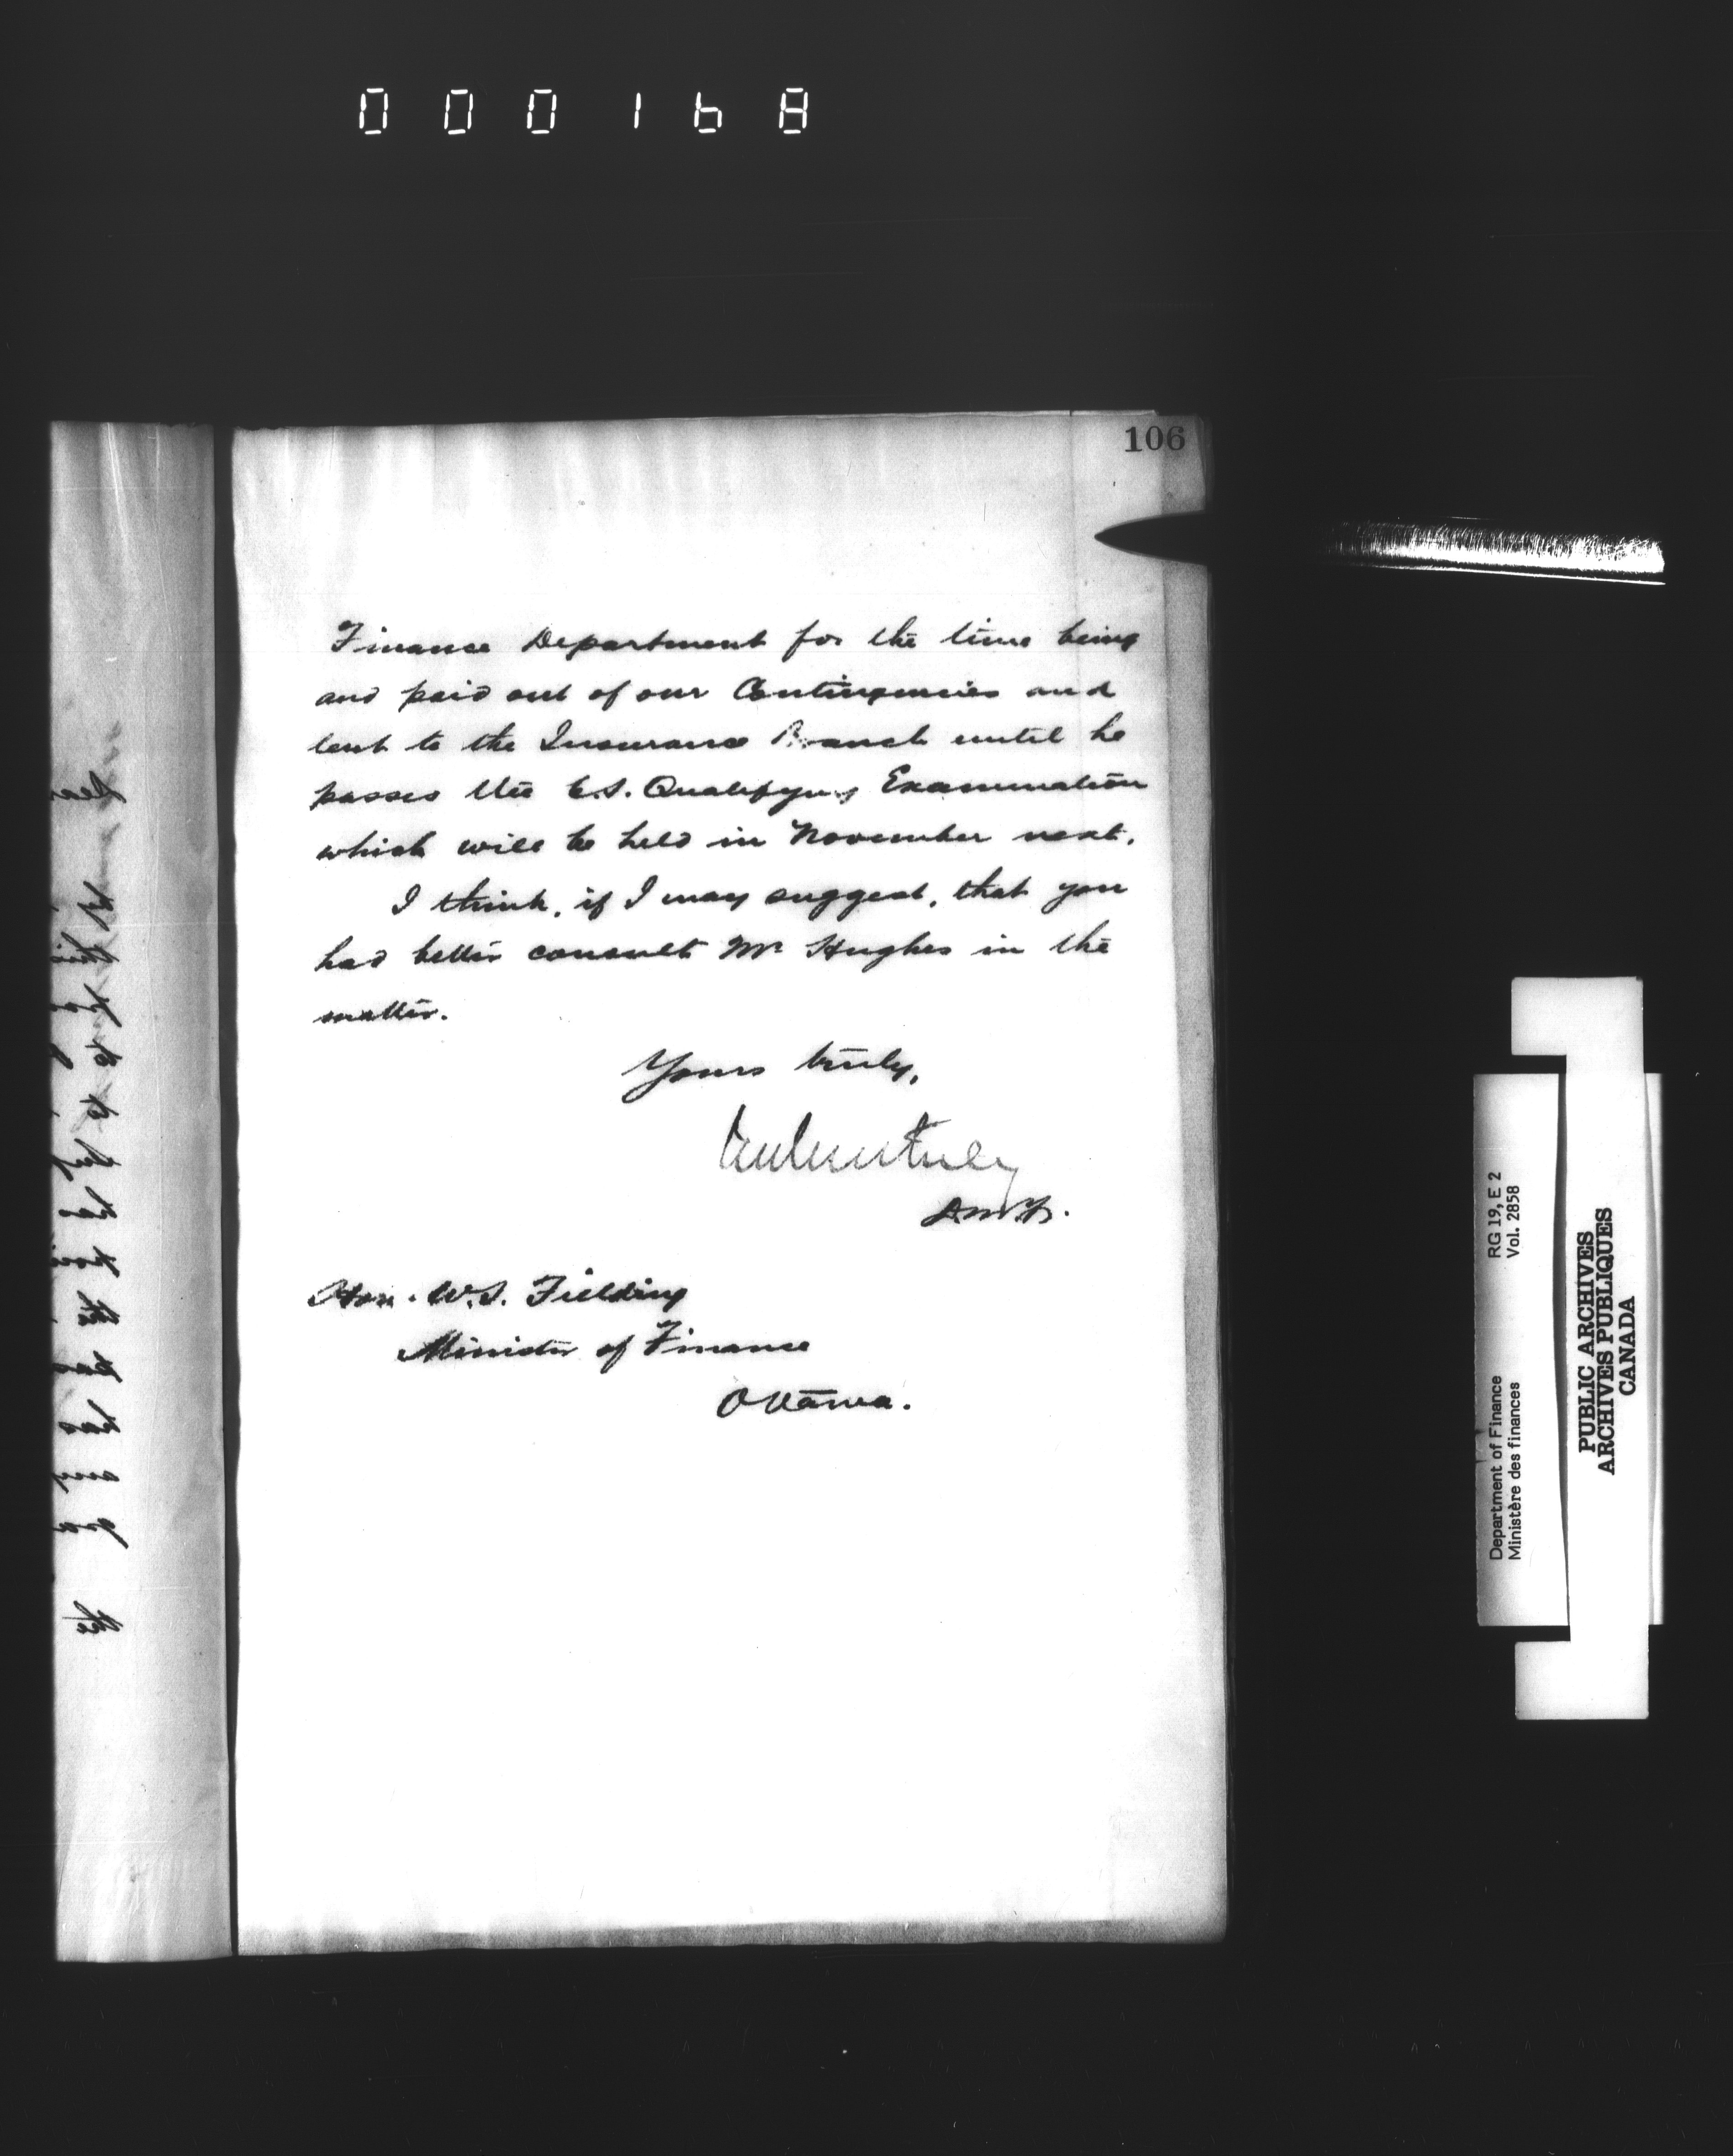 000168
106
Finance Department for the time being
and paid out of our Contingencies and
lent to the Insurance Branch until he
passes the C.S. Qualifying Examination
which will be held in November next.
I think, if I may suggest, that you
had better consult Mr Hughes in the
matter.
Yours truly,
D.M.F.
Hon. W.S. Fielding
Minister of Finance
Ottawa.
Department of Finance RG 19, E 2
Ministère des finances Vol. 2858
PUBLIC ARCHIVES
ARCHIVES PUBLIQUES
CANADA